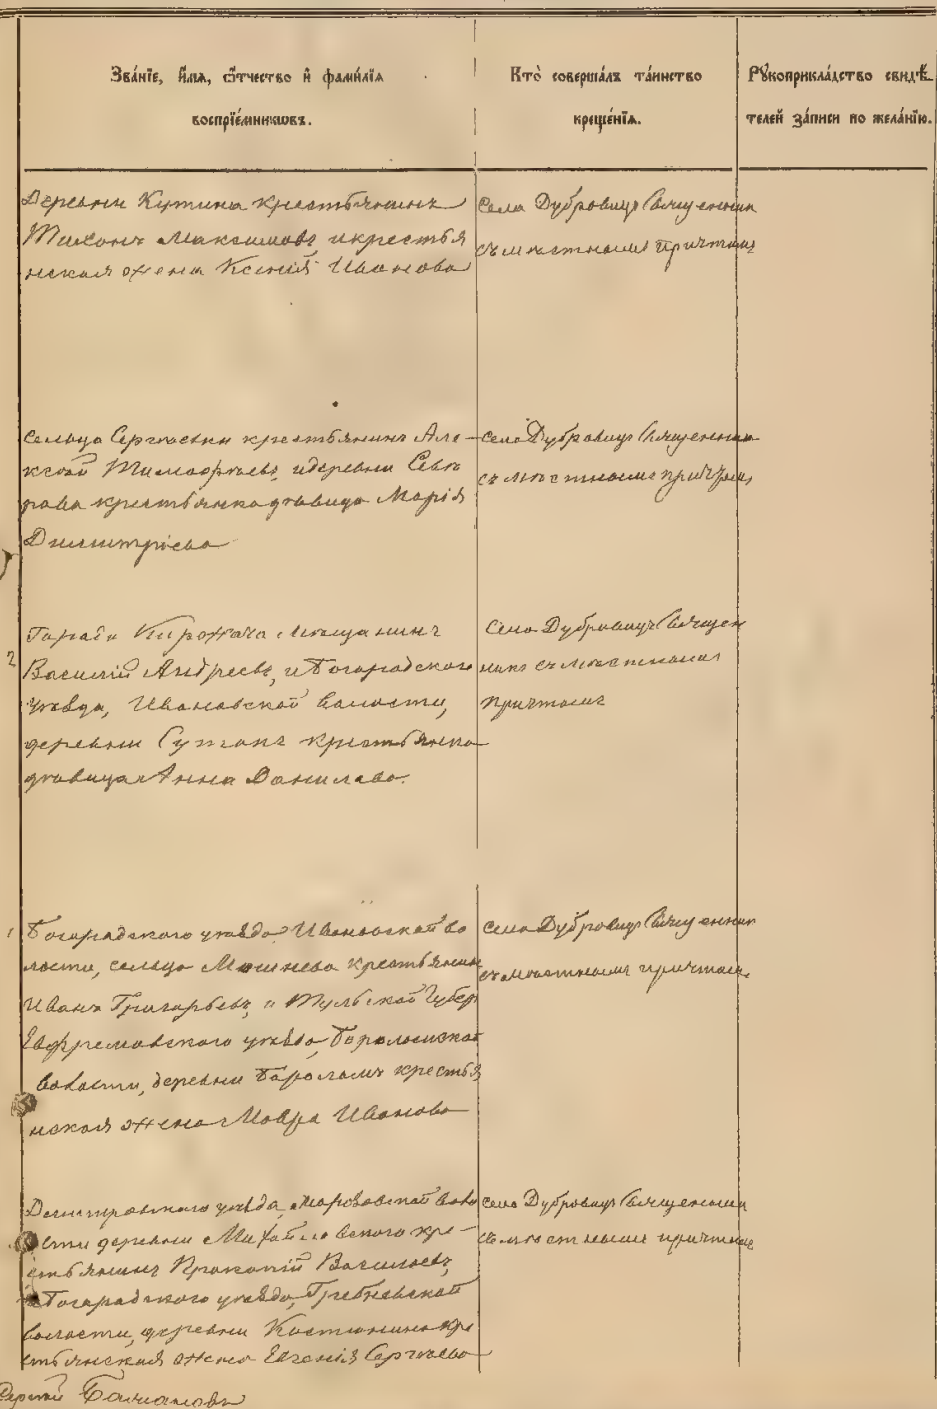 Зва́нїе, и҆́мѧ, ѻ҆́тчество и҆ фамѝлїѧ
воспрїе́мникѡвъ.
Кто̀ соверша́лъ та́инство
креще́нїѧ.
Рꙋкоприкла́дство свидѣ́-
телей за́писи по жела́нїю.
Деревни Кутина крестьянинъ
Тихонъ Максимовъ и крестья
нская жена Ксенія Иванова
Села Дубровицъ Священник
съ мѣстнымъ причтомъ
Сельца Сергѣевки крестьянинъ Але-
ксѣй Тимофѣевъ, и деревни
крестьянка дѣвица Марія
Димитріева
Села Дубровицъ Священник
съ мѣстнымъ причтомъ
Города мѣщанинъ
Василій Андреевъ, и Богородского
уѣзда, Ивановской волости,
деревни крестьянка
дѣвица Анна Данилова.
Села Дубровицъ Священ
никъ съ мѣстнымъ
причтомъ
Богородского уѣзда Ивановской во
лости, сельца крестьянин
Иванъ Григорьевъ, и Тульской Губер
Ефремовского уѣзда,
волости, деревни крестья
нская жена Мавра Иванова
Села Дубровицъ Священник
съ мѣстнымъ причтомъ
Дмитровского уѣзда, воло
сти деревни Михайловского кре-
стьянинъ Прокопій Васильевъ,
и Богородского уѣзда, Гребневской
волости, деревни Костюнино кре
стьянская жена Евгенія Сергѣева
Села Дубровицъ Священникъ
съ мѣстнымъ причтомъ
Сергій